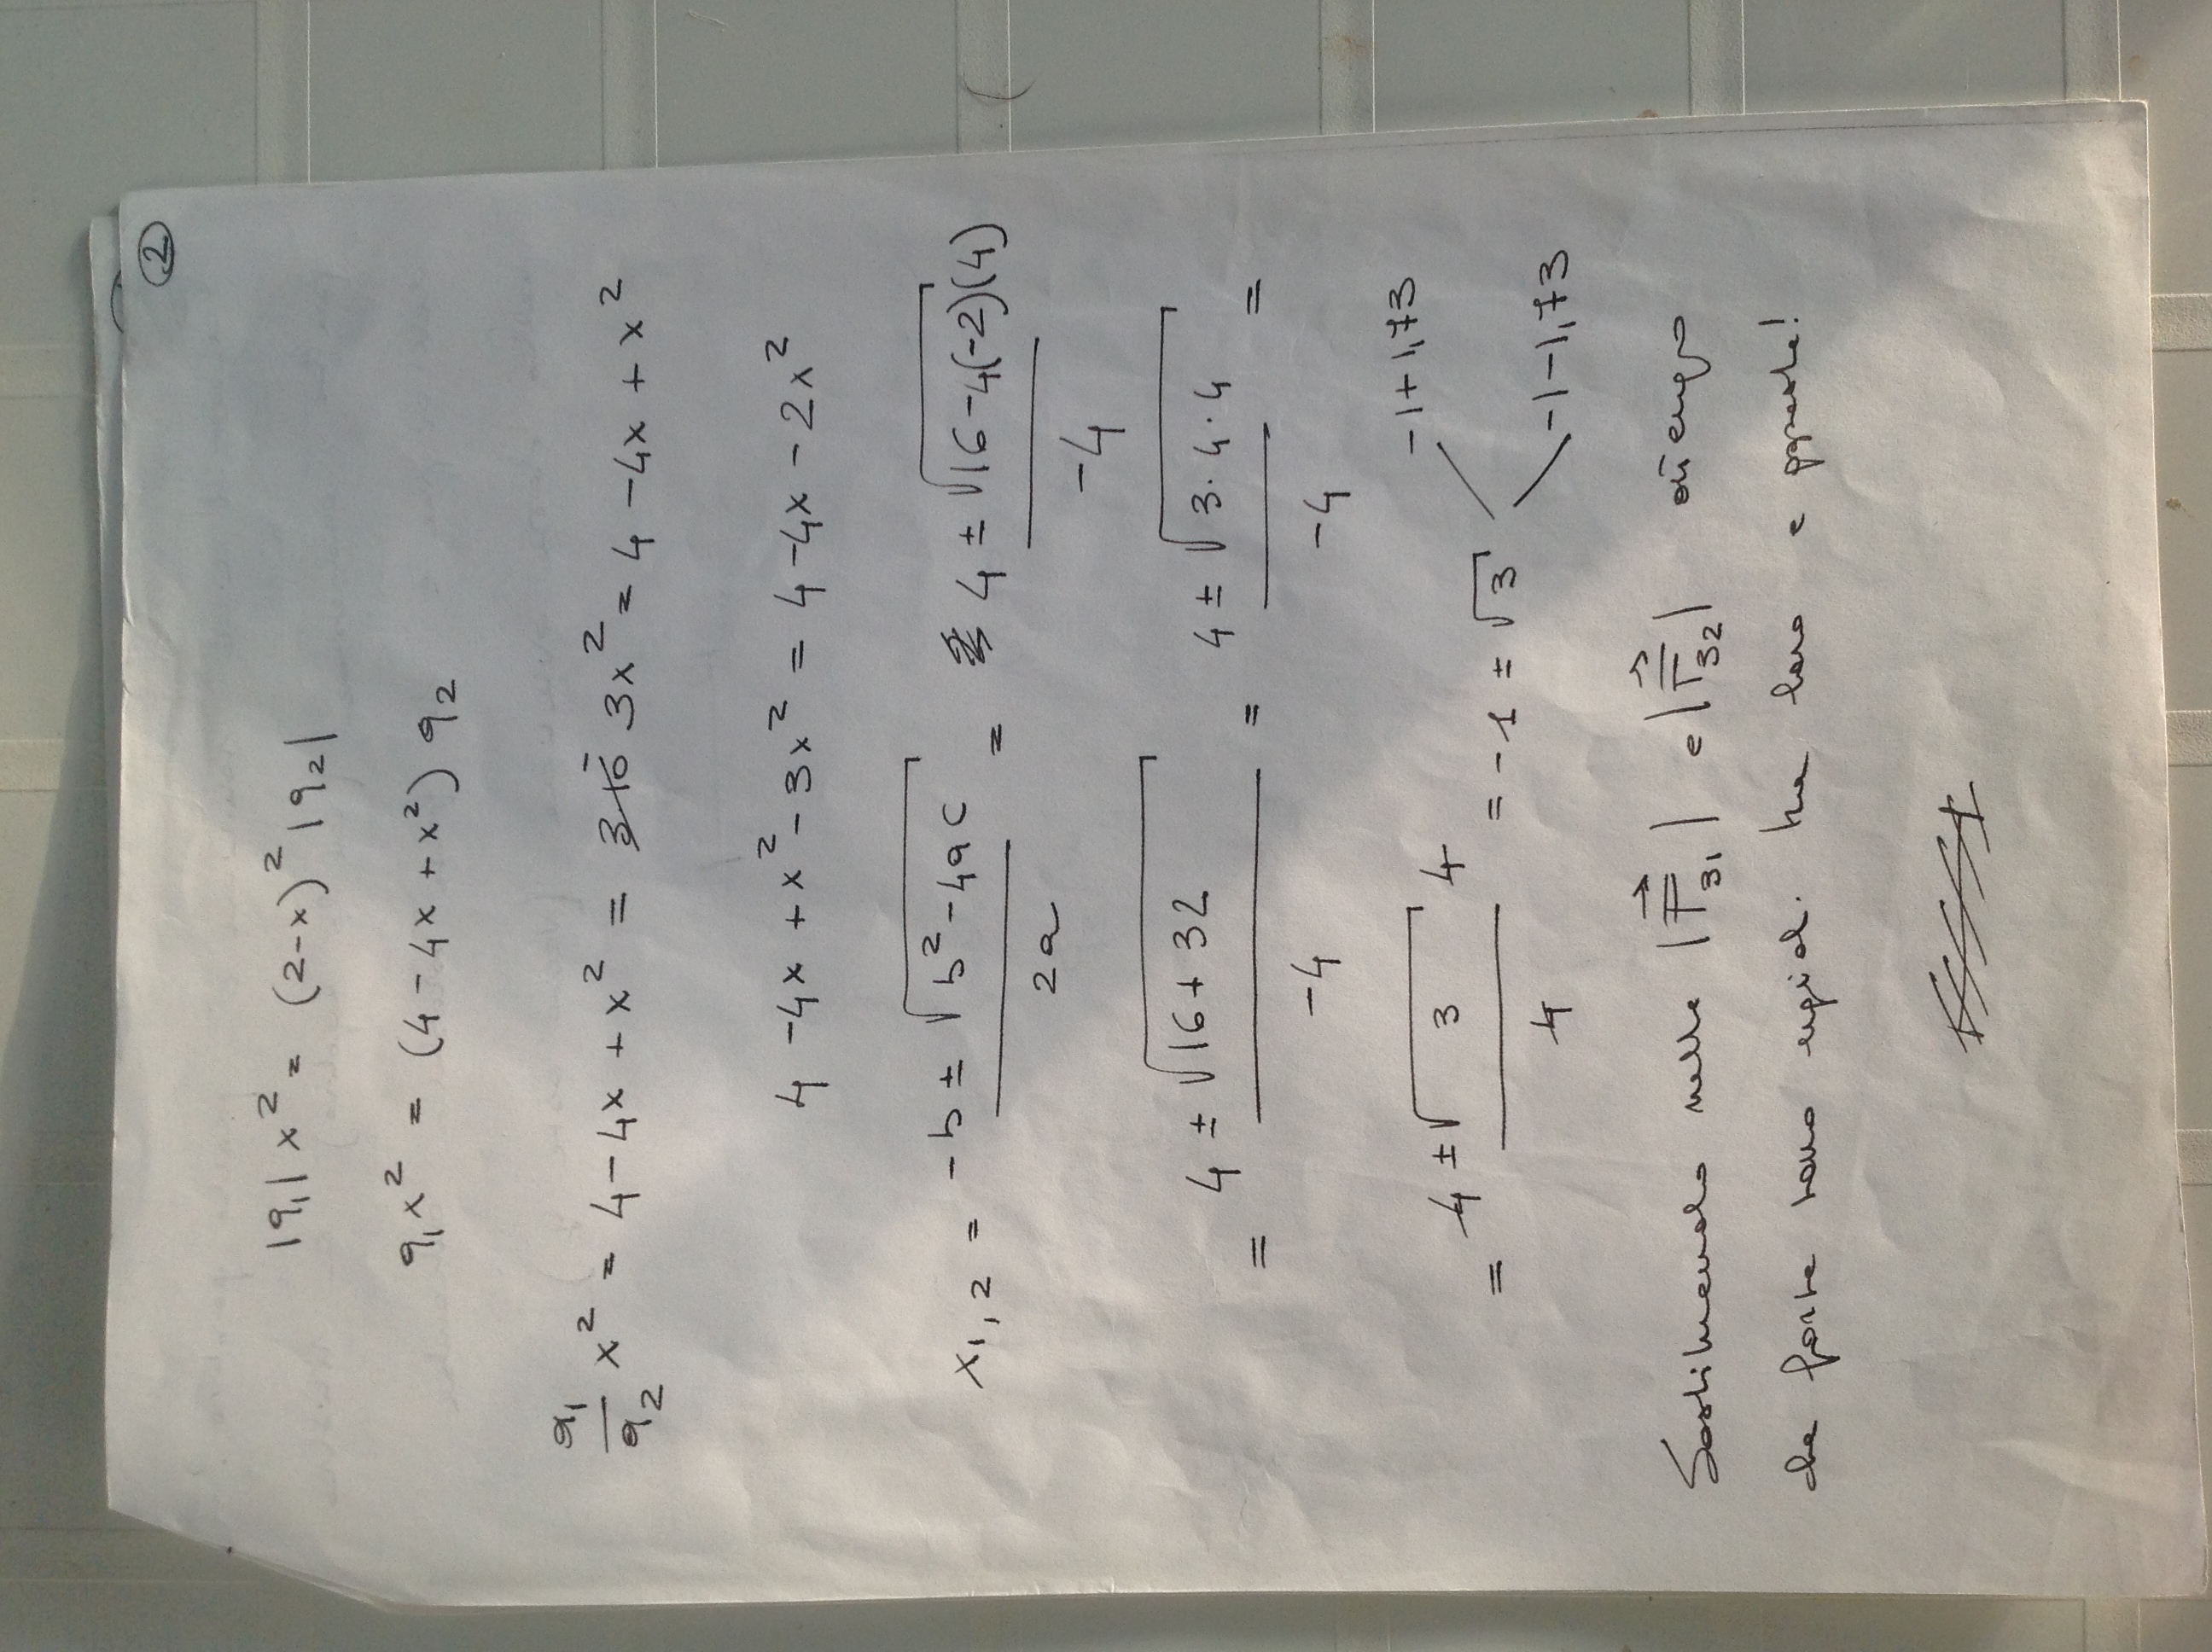 2
|q₁| x² = (2-x)² |q₂|
q₁x² = (4 - 4x + x²) q₂
q₁/q₂ x² = 4 - 4x + x² = 3x² = 4 - 4x + x²
4 - 4x + x² - 3x² = 4 - 4x - 2x²
x₁,₂ = (-b ± √(b² - 4ac))/2a = (4 ± √(16 - 4(-2)(4)))/-4
= (4 ± √(16 + 32))/-4 = (4 ± √(3·4·4))/-4 =
= (4 ± √3 4)/4 = -1 ± √3
-1+1,73
-1-1,73
Sostituendo nelle |F⃗₃₁| e |F⃗₃₂| ottengo
che forze sono uguali tra loro e opposte!